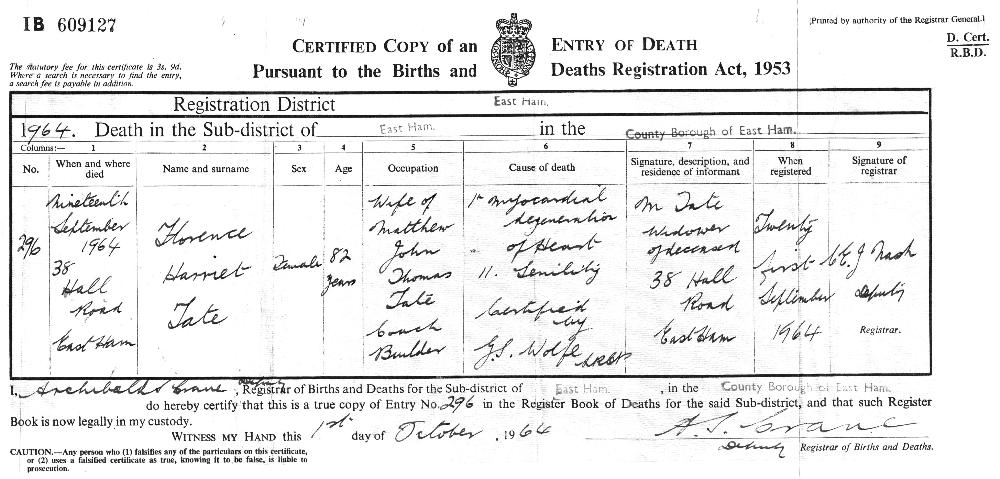 IB 609127
[Printed by authority of the Registrar General.]
D. Cert.
R.B.D.
CERTIFIED COPY of an ENTRY OF DEATH
Pursuant to the Births and Deaths Registration Act, 1953
The statutory fee for this certificate is 3s. 9d.
Where a search is necessary to find the entry,
a search fee is payable in addition.
Registration District East Ham.
1964. Death in the Sub-district of East Ham. in the County Borough of East Ham.
Columns:— 1 2 3 4 5 6 7 8 9
No.
When and where
died
Name and surname
Sex
Age
Occupation
Cause of death
Signature, description, and
residence of informant
When
registered
Signature of
registrar
296
Nineteenth
September
1964
38
Hall
Road
East Ham
Florence
Harriet
Tate
Female
82
years
Wife of
Matthew
John
Thomas
Tate
Coach
Builder
Myocardial
degeneration
of Heart
11. Senility
Certified
by
G.S. Wolfe
M Tate
Widower
of deceased
38 Hall
Road
East Ham
Twenty
first
September
1964
J Nash
Deputy
Registrar.
I, Archibald S Crane, Deputy Registrar of Births and Deaths for the Sub-district of East Ham. , in the County Borough of East Ham.
do hereby certify that this is a true copy of Entry No. 296 in the Register Book of Deaths for the said Sub-district, and that such Register
Book is now legally in my custody.
WITNESS MY HAND this 1st day of October, 1964
A. S. Crane
Deputy Registrar of Births and Deaths.
CAUTION.—Any person who (1) falsifies any of the particulars on this certificate,
or (2) uses a falsified certificate as true, knowing it to be false, is liable to
prosecution.